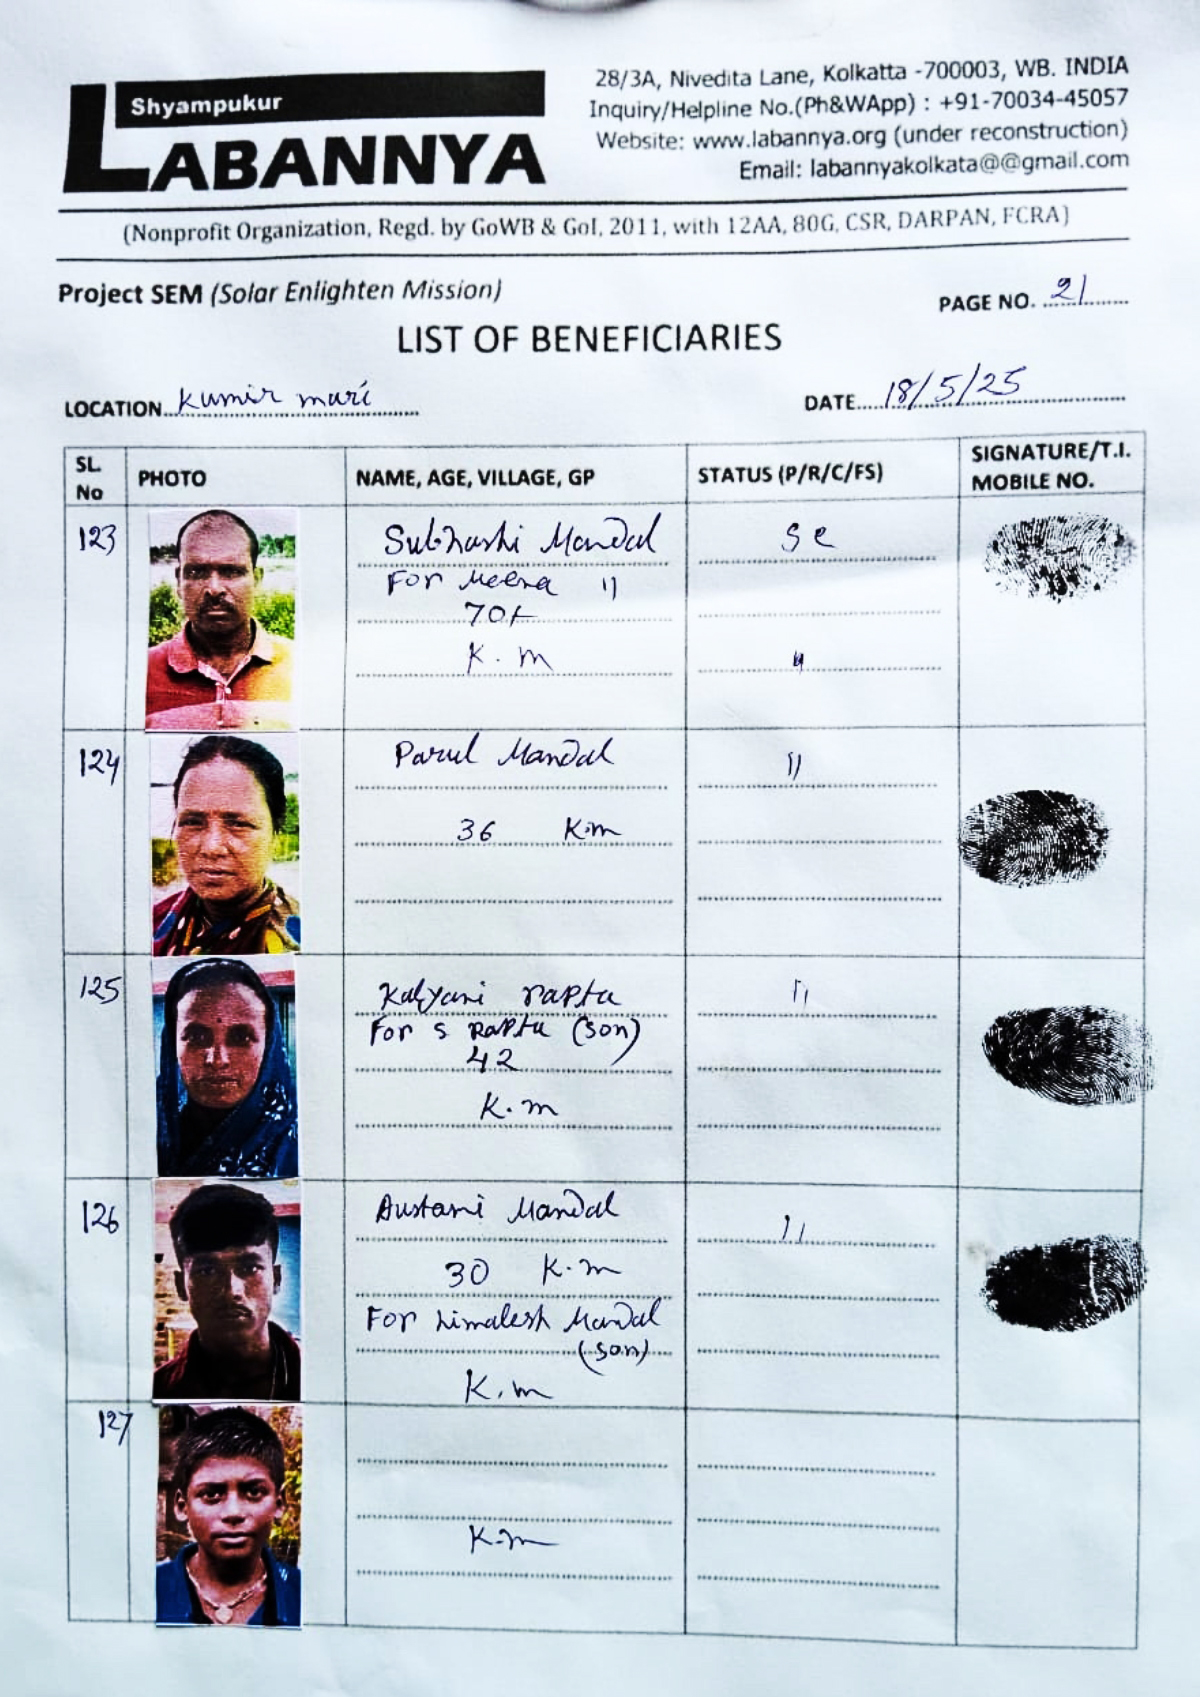 Shyampukur
LABANNYA
28/3A, Nivedita Lane, Kolkatta -700003, WB. INDIA
Inquiry/Helpline No.(Ph&WApp) : +91-70034-45057
Website: www.labannya.org (under reconstruction)
Email: labannyakolkata@@gmail.com
(Nonprofit Organization, Regd. by GoWB & GoI, 2011, with 12AA, 80G, CSR, DARPAN, FCRA)
Project SEM (Solar Enlighten Mission)
PAGE NO. 21
LIST OF BENEFICIARIES
LOCATION Kumir mari
DATE 18/5/25
SL. No
PHOTO
NAME, AGE, VILLAGE, GP
STATUS (P/R/C/FS)
SIGNATURE/T.I. MOBILE NO.
123
Subhashi Mandal
For Meena 11
70+
K.m
Sc
"
124
Parul Mandal
36 K.m
11
125
Kalyani rapta
For S Rapta (son)
42
K.m
11
126
Austami Mandal
30 K.m
For Mandal
(son)
K.m
11
127
K.m